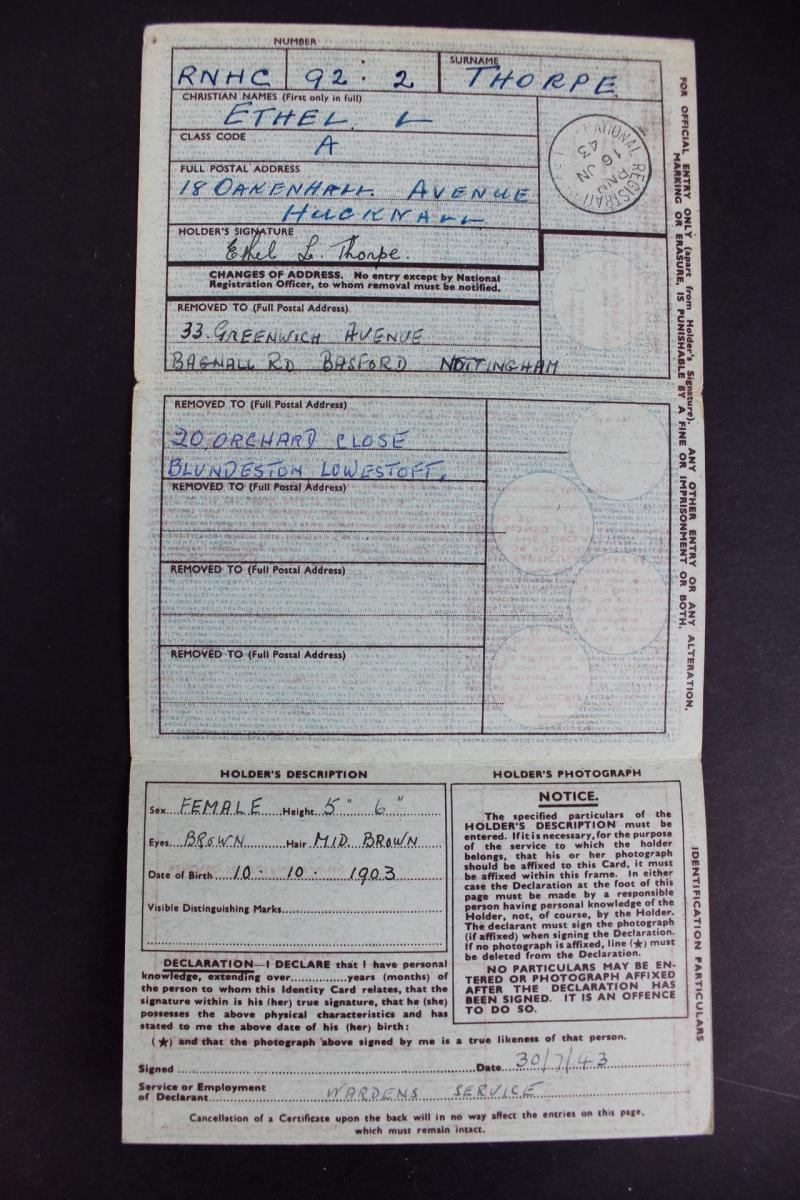 NUMBER
SURNAME
RNHC 92 · 2 THORPE
CHRISTIAN NAMES (First only in full)
ETHEL L
CLASS CODE
A
FULL POSTAL ADDRESS
18 OAKENHALL AVENUE
HUCKNALL
HOLDER'S SIGNATURE
Ethel L. Thorpe.
NATIONAL REGISTRATION
16 JN
43
RNH
CHANGES OF ADDRESS. No entry except by National
Registration Officer, to whom removal must be notified.
REMOVED TO (Full Postal Address)
33. GREENWICH AVENUE
BAGNALL RD BASFORD NOTTINGHAM
REMOVED TO (Full Postal Address)
20, ORCHARD CLOSE
BLUNDESTON LOWESTOFT,
REMOVED TO (Full Postal Address)
REMOVED TO (Full Postal Address)
REMOVED TO (Full Postal Address)
FOR OFFICIAL ENTRY ONLY (apart from Holder's Signature). ANY OTHER ENTRY OR ANY ALTERATION,
MARKING OR ERASURE, IS PUNISHABLE BY A FINE OR IMPRISONMENT OR BOTH.
HOLDER'S DESCRIPTION
Sex FEMALE Height 5" 6"
Eyes BROWN Hair MID. BROWN
Date of Birth 10 · 10 · 1903
Visible Distinguishing Marks
HOLDER'S PHOTOGRAPH
NOTICE.
The specified particulars of the
HOLDER'S DESCRIPTION must be
entered. If it is necessary, for the purpose
of the service to which the holder
belongs, that his or her photograph
should be affixed to this Card, it must
be affixed within this frame. In either
case the Declaration at the foot of this
page must be made by a responsible
person having personal knowledge of the
Holder, not, of course, by the Holder.
The declarant must sign the photograph
(if affixed) when signing the Declaration.
If no photograph is affixed, line (★) must
be deleted from the Declaration.
NO PARTICULARS MAY BE EN-
TERED OR PHOTOGRAPH AFFIXED
AFTER THE DECLARATION HAS
BEEN SIGNED. IT IS AN OFFENCE
TO DO SO.
IDENTIFICATION PARTICULARS
DECLARATION—I DECLARE that I have personal
knowledge, extending over..............years (months) of
the person to whom this Identity Card relates, that the
signature within is his (her) true signature, that he (she)
possesses the above physical characteristics and has
stated to me the above date of his (her) birth:
(★) and that the photograph above signed by me is a true likeness of that person.
Signed Date 30/7/43
Service or Employment
of Declarant WARDENS SERVICE
Cancellation of a Certificate upon the back will in no way affect the entries on this page,
which must remain intact.